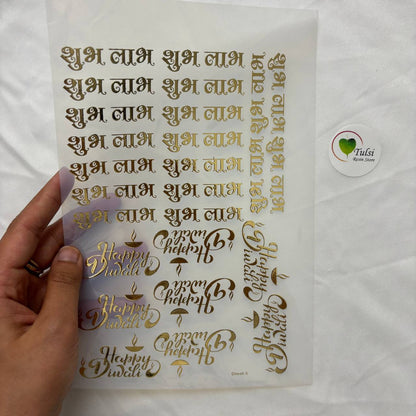 शुभ लाभ शुभ लाभ
शुभ लाभ शुभ लाभ
शुभ लाभ शुभ लाभ
शुभ लाभ शुभ लाभ
शुभ लाभ शुभ लाभ
शुभ लाभ शुभ लाभ
शुभ लाभ शुभ लाभ
शुभ लाभ शुभ लाभ
शुभ लाभ शुभ लाभ
Happy
Diwali
Happy
Diwali
Happy
Diwali
Happy
Diwali
Happy
Diwali
Happy
Diwali
Happy
Diwali
Happy
Diwali
Tulsi
Resin Store